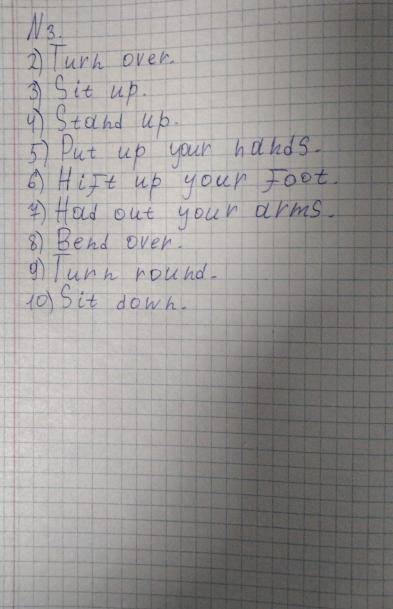 N3.
2) Turn over.
3) Sit up.
4) Stand up.
5) Put up your hands.
6) Hift up your Foot.
7) Had out your arms.
8) Bend over.
9) Turn round.
10) Sit down.